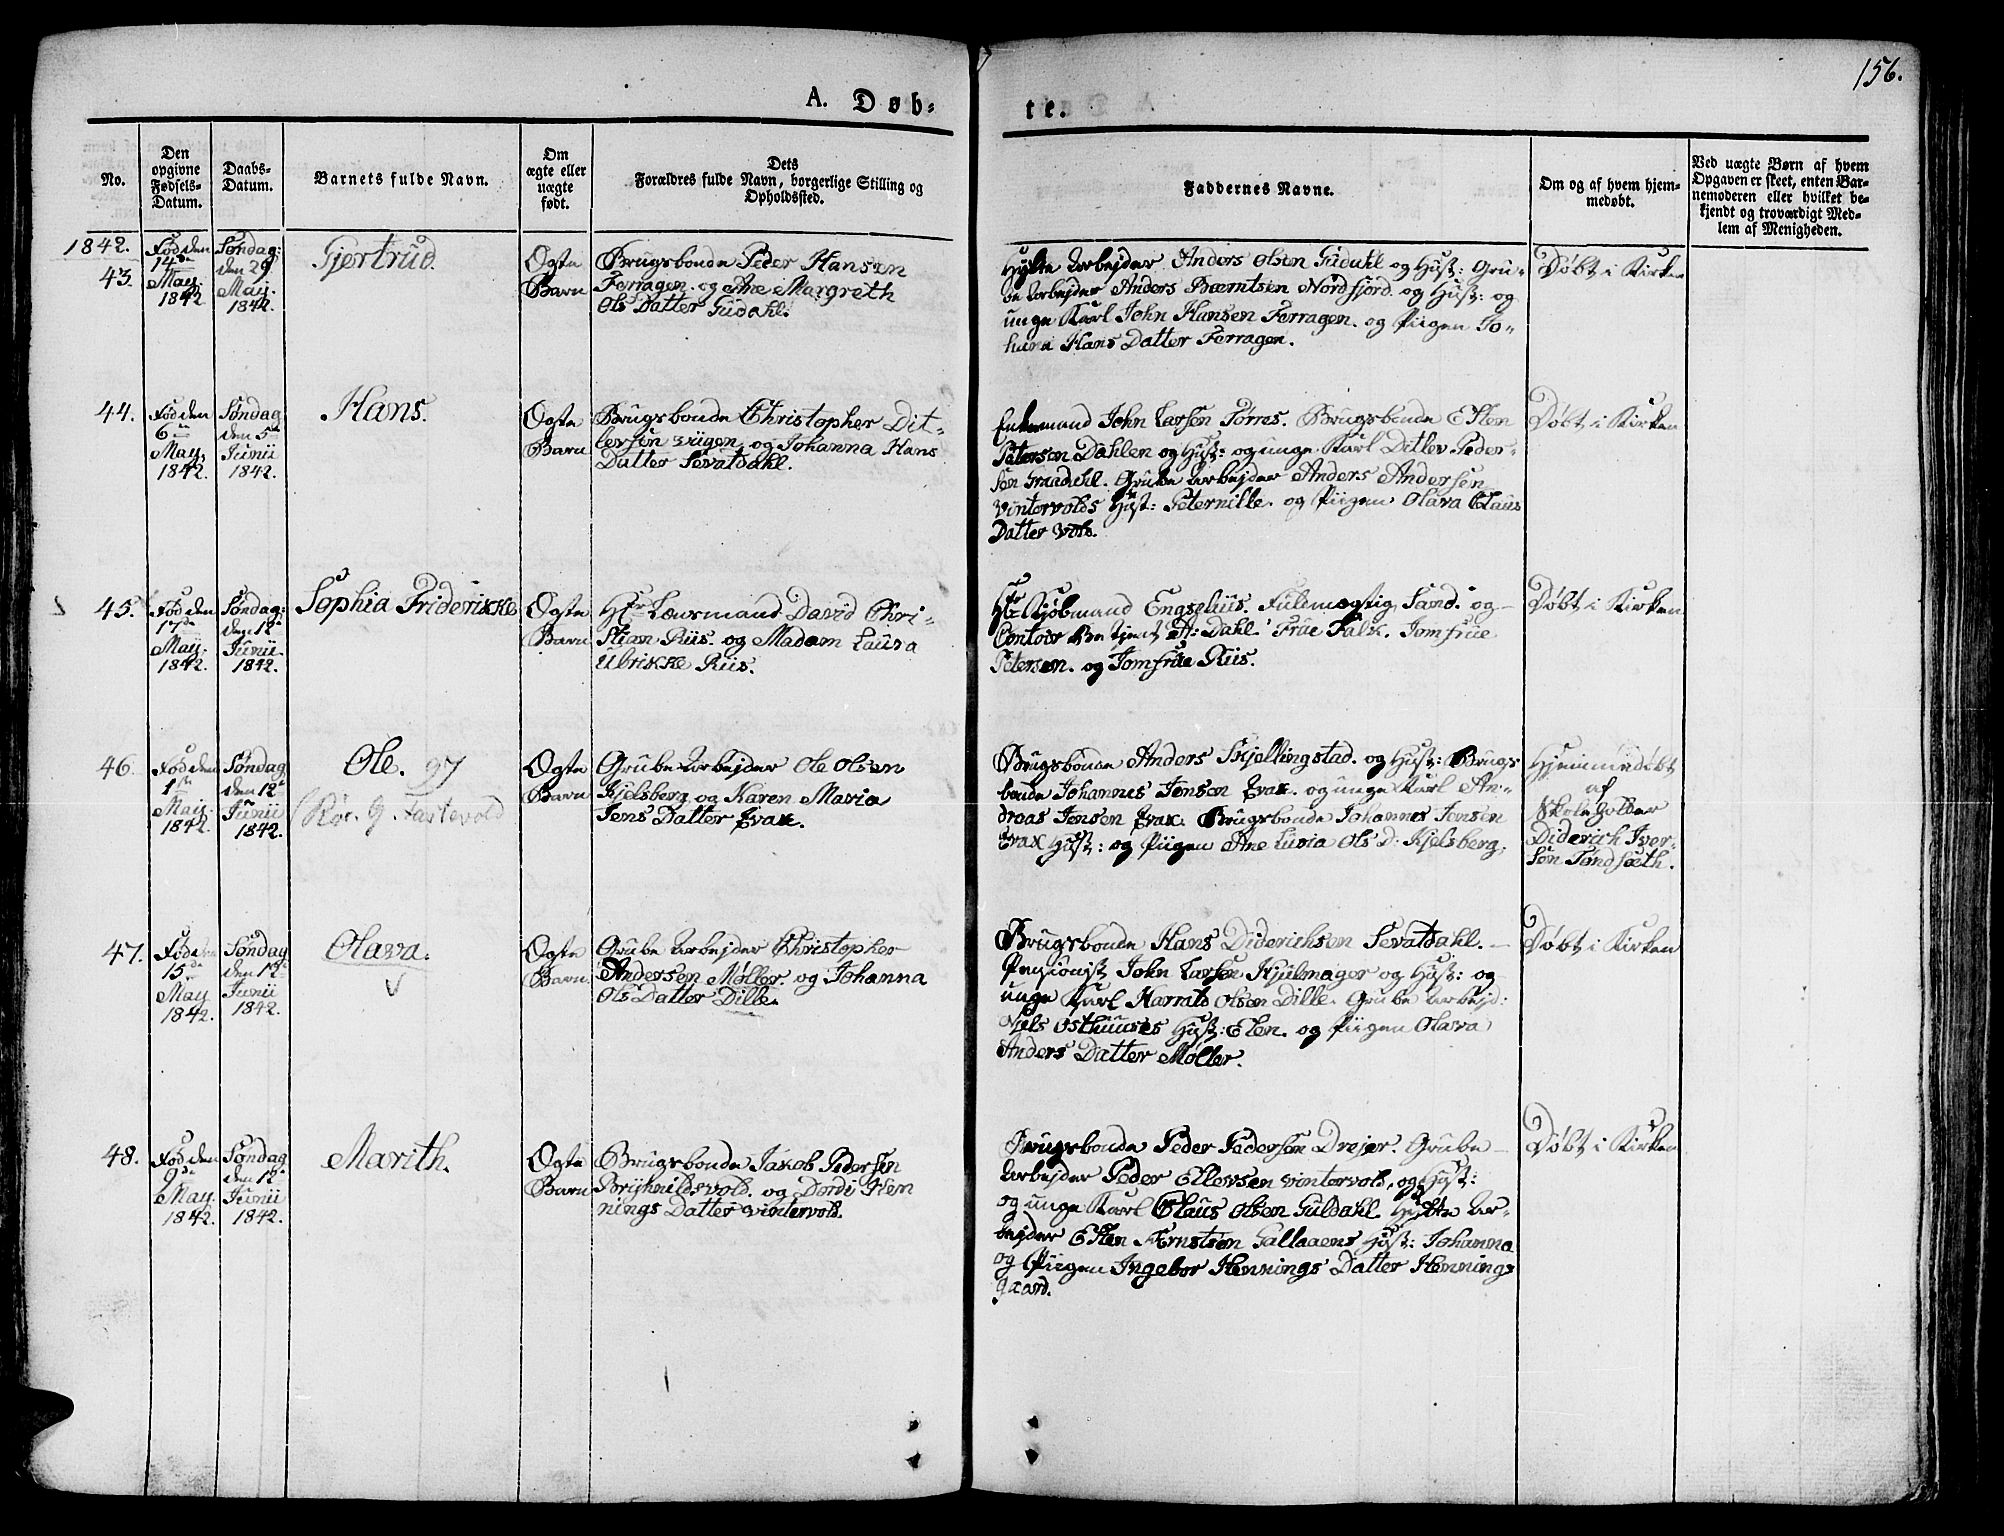 156.
A. Døb-
te.
No.
Den
opgivne
Fødsels-
Datum.
Daabs-
Datum.
Barnets fulde Navn.
Om
ægte eller
uægte
født.
Dets
Forældres fulde Navn, borgerlige Stilling og
Opholdssted.
Faddernes Navne.
Om og af hvem hjem-
medøbt.
Ved uægte Børn af hvem
Opgaven er skeet, enten Bar-
nemoderen eller hvilket be-
kjendt og troværdigt Med-
lem af Menigheden.
1842.
43.
Fød den
14de
May.
1842
Søndag:
den 29
May.
1842.
Gjertrud.
Ogte
Barn
Brugsbonde Peder Hansen
Ferragen. og Ane Margreth
Ols Datter Gudahl.
Hytte Arbejder Anders Olsen Gudahl og Hust: Gru-
be Arbejder Anders Bærntsen Nordfjord. og Hust: og
unge Karl John Hansen Ferragen. og Piigen Jo-
hana Hans Datter Ferragen.
Døbt i Kirken
44.
Fød den
6te
May.
1842.
Søndag
den 5te
Junii
1842.
Hans.
Ogte
Barn
Brugsbonde Christopher Dit-
lefsen Viigen, og Johanna Hans
Datter Sevatdahl.
Enkemand John Larsen Tørres. Brugsbonde Esten
Petersen Dahlen og Hust: og unge Karl Ditlev Peder-
sen Graadahl. Grube Arbejder Anders Andersen
Vintervolds Hust: Peternille. og Piigen Olava Claus
Datter Vold.
Døbt i Kirken
45.
Fød den
17de
May.
1842.
Søndag:
den 12te
Junii
1842.
Sophia Friderikke
Ogte
Barn
Hr. Lænsmand David Chri-
stian Riis. og Madam Laura
Ulrikke Riis.
Hr. Kjøbmand Engzeliis. Fulmægtig Sand. og
Contoir Betjent A: Dahl. Frue Falk. Jomfrue
Petersen. og Jomfrue Riis.
Døbt i Kirken
46.
Fød den
1ste
May.
1842.
Søndag
den 12te
Junii
1842.
Ole. 97
Rør. g.
Ogte
Barn
Grube Arbejder Ole Olsen
Kjelsberg og Karen Maria
Jens Datter Evax.
Brugsbonde Anders Skjellingstad. og Hust: Brugs
bonde Johannes Jensen Evax. og unge Karl An-
dreas Jensen Evax. Brugsbonde Johannes Jensen
Evax Hust: og Piigen Ane Lusia Ols D: Kjelsberg.
Hjemmedøbt
af
Skoleholder
Diderich Iver-
sen Tøndsæth.
47.
Fød den
15de
May
1842.
Søndag
den 12te
Junii
1842.
Olava.
Ogte
Barn
Grube Arbejder Christopher
Andersen Møller. og Johanna
Ols Datter Dille.
Brugsbonde Hans Diderichsen Sevatdahl.
Pensionist John Larsen Hjulmager og Hust: og
unge Karl Harrald Olsen Dille. Grube Arbejd:
Njels Osthuuses Hust: Elen. og Piigen Olava
Anders Datter Møller.
Døbt i Kirken
48.
Fød den
9de
May.
1842.
Søndag
den 12te
Junii
1842.
Marith.
Ogte
Barn
Brugsbonde Jakob Pedersen
Brijhnildsvold. og Dordi Hen
nings Datter Vintervold.
Brugsbonde Peder Pedersen Drejer. Grube
Arbejder Peder Ellevsen Vintervold, og Hust:
og unge Karl Claus Olsen Guldahl. Hytte Ar-
bejder Esten Ærnstsøn Gallaaens Hust: Johanna
og Piigen Ingebor Hennings Datter Hennings
gaard.
Døbt i Kirken